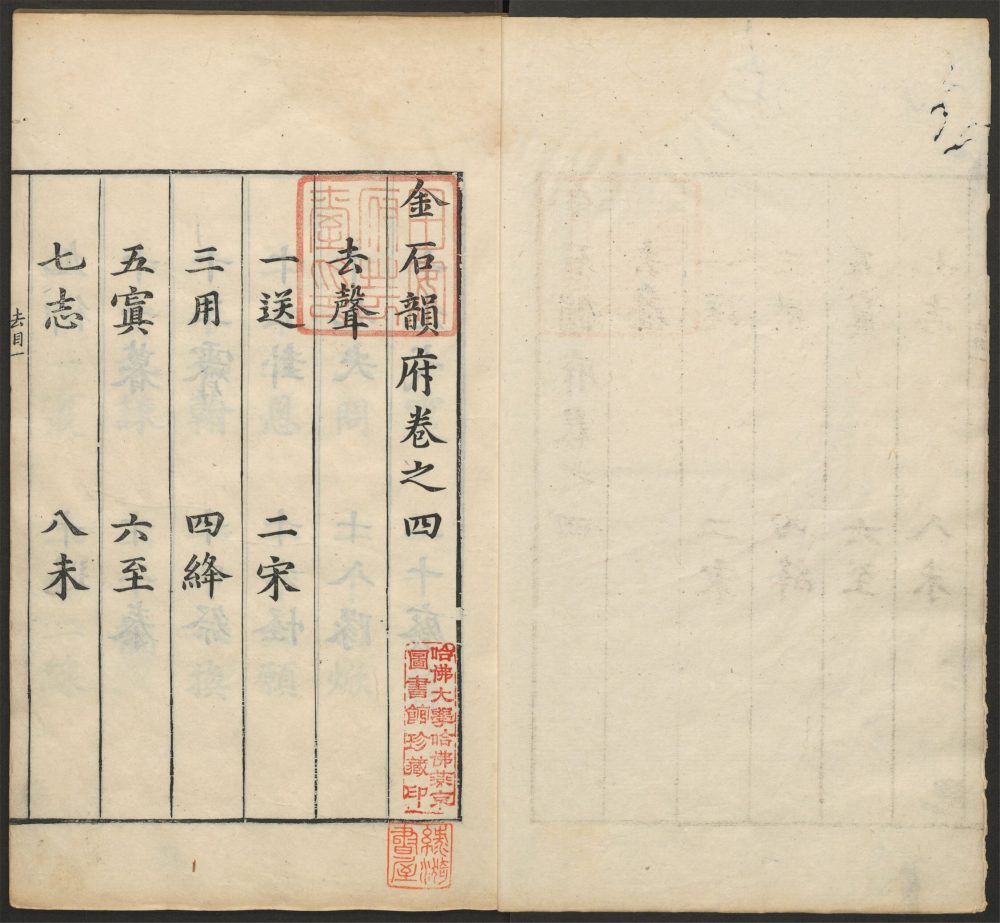 金石韻府卷之四
去聲
一送 二宋
三用 四絳
五寘 六至
七志 八未
去目一
哈佛大學哈佛燕京
圖書館珍藏印
書屋